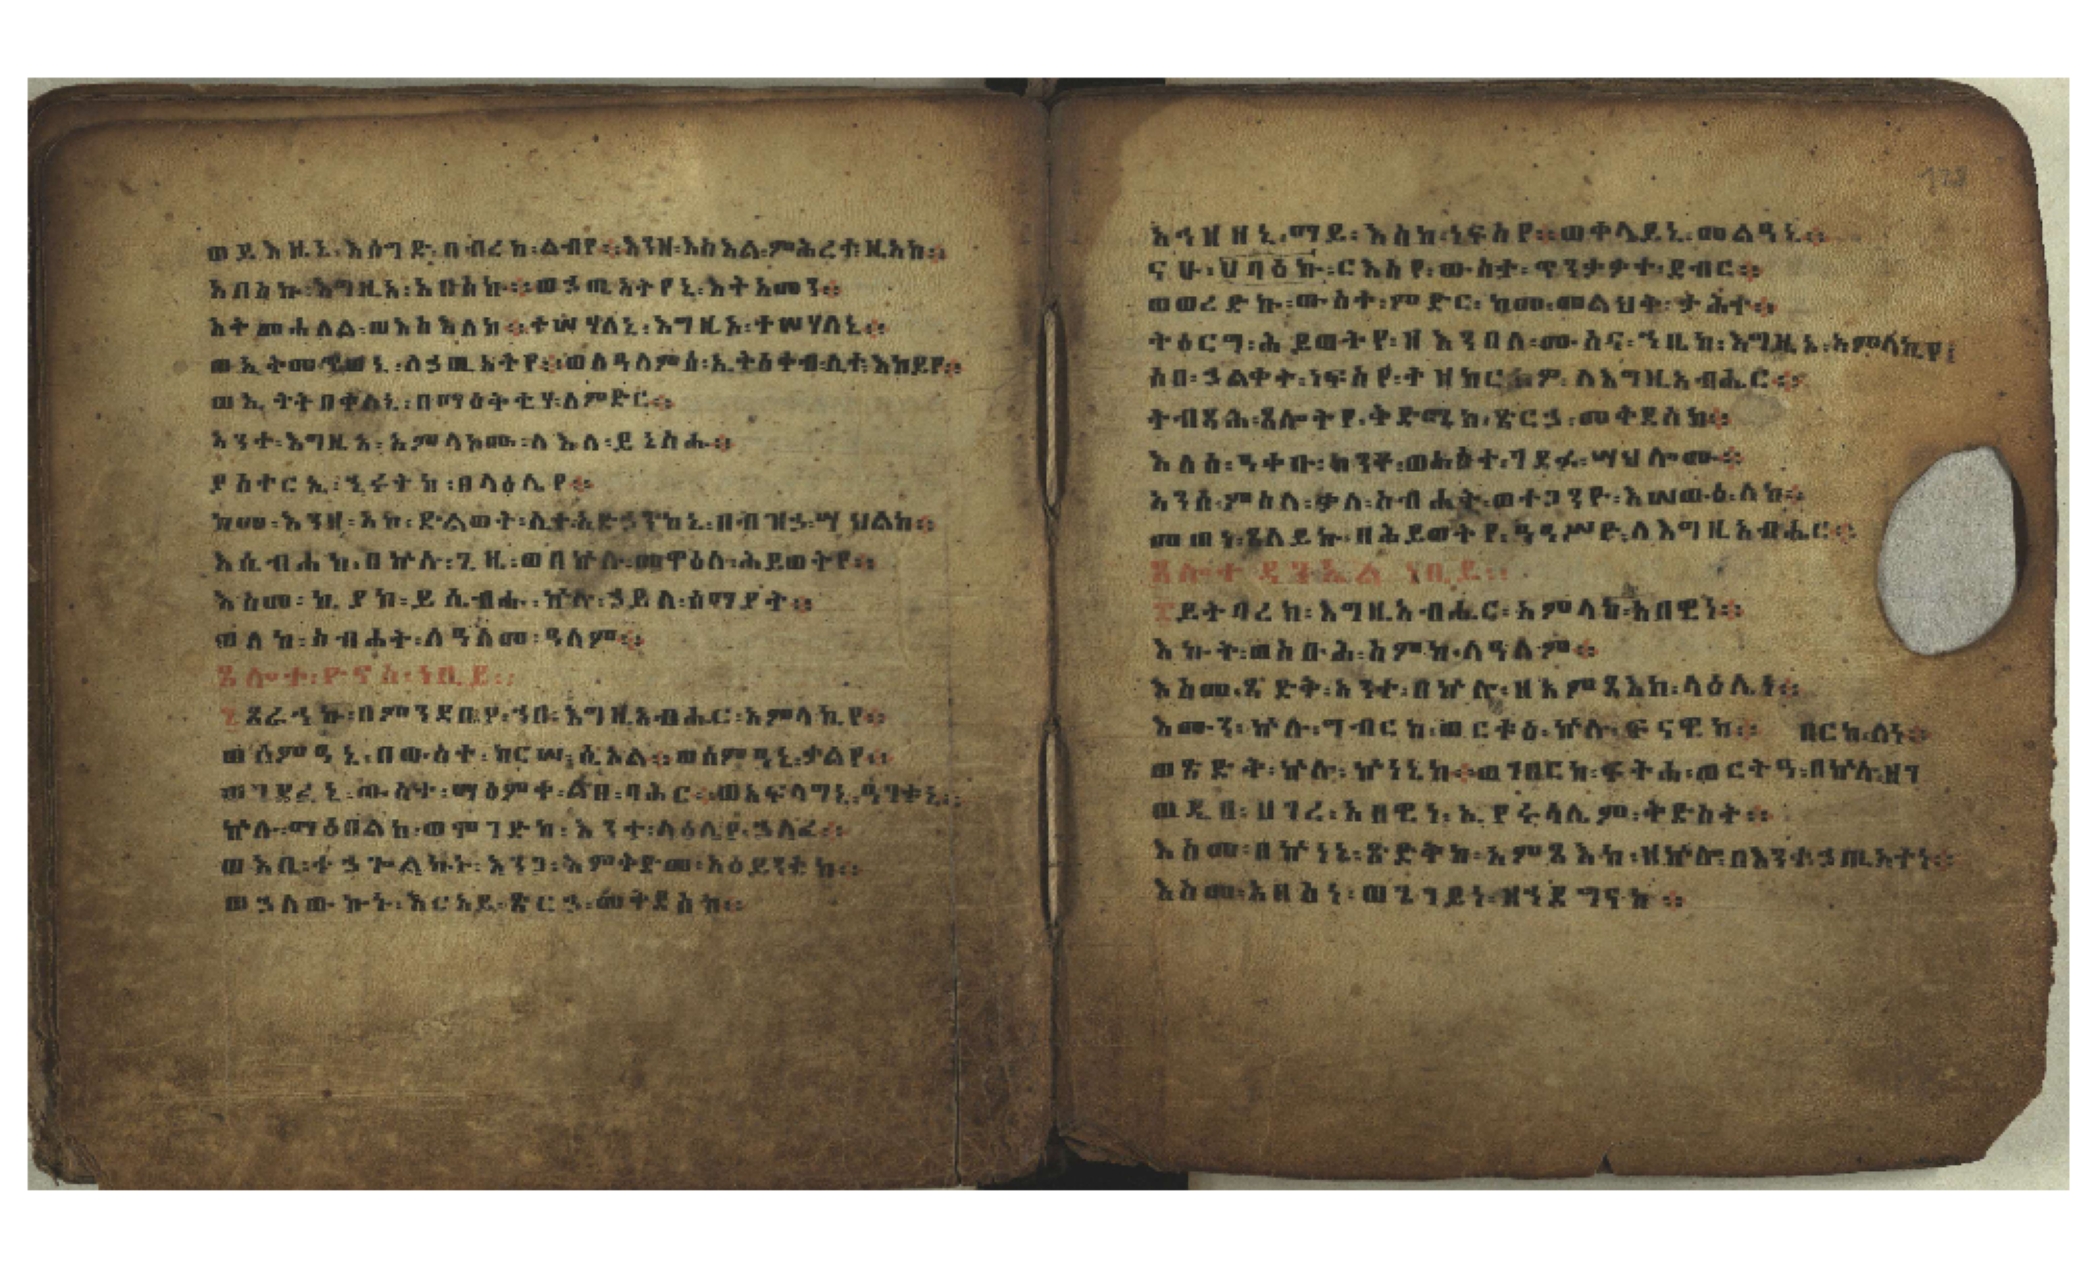 ወይእዜኒ፡እሰግድ፡በብረከ፡ልብየ፨እንዘ፡እስእል፡ምሕረተ፡ዚአከ፨
አበስኩ፡እግዚኦ፡አበስኩ፨ወኃጢአትየኒ፡አትአመን፨
አትመሐለል፡ወእስእለከ፨ተሣሃለኒ፡እግዚኦ፡ተሣሃለኒ፨
ወኢትመጥወኒ፡ለኃጢአትየ፨ወለዓለምሰ፡ኢትዕቀብ፡ሊተ፡እከይየ፨
ወኢትትበቀለኒ፡በማዕትቲሃ፡ለምድር፨
አንተ፡እግዚኦ፡አምላኮሙ፡ለእለ፡ይኔስሑ፨
ያስተርኢ፡ኂሩትከ፡በላዕሌየ፨
ከመ፡እንዘ፡ኢኮ፡ድልወት፡ሊተ፡አድኃንከኒ፡በብዝኃ፡ሣህልከ፨
እሴብሐከ፡በኵሉ፡ጊዜ፡ወበኵሉ፡መዋዕለ፡ሕይወትየ፨
እስመ፡ኪያከ፡ይሴብሑ፡ኵሉ፡ኃይለ፡ሰማያት፨
ወለከ፡ስብሐት፡ለዓለመ፡ዓለም፨
ጸሎተ፡ዮናስ፡ነቢይ፨
፯ጸራኅኩ፡በምንዳቤየ፡ኀበ፡እግዚአብሔር፡አምላኪየ፨
ወሰምዓኒ፡በውስተ፡ከርሠ፡ሲኦል፨ወሰምዓኒ፡ቃልየ፨
ወገደፈኒ፡ውስተ፡ማዕምቀ፡ልበ፡ባሕር፨ወአፍላግኒ፡ዓገቱኒ፨
ኵሉ፡ማዕበልከ፡ወሞገድከ፡እንተ፡ላዕሌየ፡ኃለፈ፨
ወእቤ፡ተኃጐልኩኑ፡እንጋ፡እምቅድመ፡አዕይንቲከ፨
ወኃለውኩኑ፡እርአይ፡ጽርኃ፡መቅደስከ፨
አኀዘዘኒ፡ማይ፡እስከ፡ነፍስየ፨ወቀላይኒ፡መልዓኒ፨
ናሁ፡ህባዕኩ፡ርእስየ፡ውስተ፡ጥንቃቃተ፡ደብር፨
ወወረድኩ፡ውስተ፡ምድር፡ከመ፡መልህቅ፡ታሕተ፨
ትዕርግ፡ሕይወትየ፡ዘእንበለ፡ሙስና፡ኀቤከ፡እግዚኦ፡አምላኪየ፨
ሶበ፡ኃልቀት፡ነፍስየ፡ተዝከርክዎ፡ለእግዚአብሔር፨
ትብጻሕ፡ጸሎትየ፡ቅድሜከ፡ጽርኃ፡መቅደስከ፨
እለሰ፡ዓቀቡ፡ከንቶ፡ወሐሰተ፡ገደፉ፡ሣህሎሙ፨
አንሰ፡ምስለ፡ቃለ፡ስብሐት፡ወተጋንዮ፡እሠውዕ፡ለከ፨
መጠነ፡ጸለይኩ፡በሕይወትየ፡ዓዓሥዮ፡ለእግዚአብሔር፨
ጸሎተ፡ዳንኤል፡ነቢይ፨
፰ይትባረከ፡እግዚአብሔር፡አምላከ፡አበዊነ፨
እኩት፡ወስቡሕ፡ስምከ፡ለዓለም፨
እስመ፡ጻድቅ፡አንተ፡በኵሉ፡ዘአምጻእከ፡ላዕሌነ፨
እሙን፡ኵሉ፡ግብርከ፡ወርቱዕ፡ኵሉ፡ፍናዊከ፨ በርከ፡ለነ፨
ወጽድቅ፡ኵሉ፡ኵነኔከ፨ወገበርከ፡ፍትሐ፡ወርትዓ፡በኵሉ፡ዘገ
ወዲበ፡ሀገረ፡አበዊነ፡ኢየሩሳሌም፡ቅድስት፨
እስመ፡በኵነኔ፡ጽድቅከ፡አምጻእከ፡ዝኵሎ፡በእንተ፡ኃጢአትነ፨
እስመ፡አበስነ፡ወጌገይነ፡ዝኀደግናከ፨